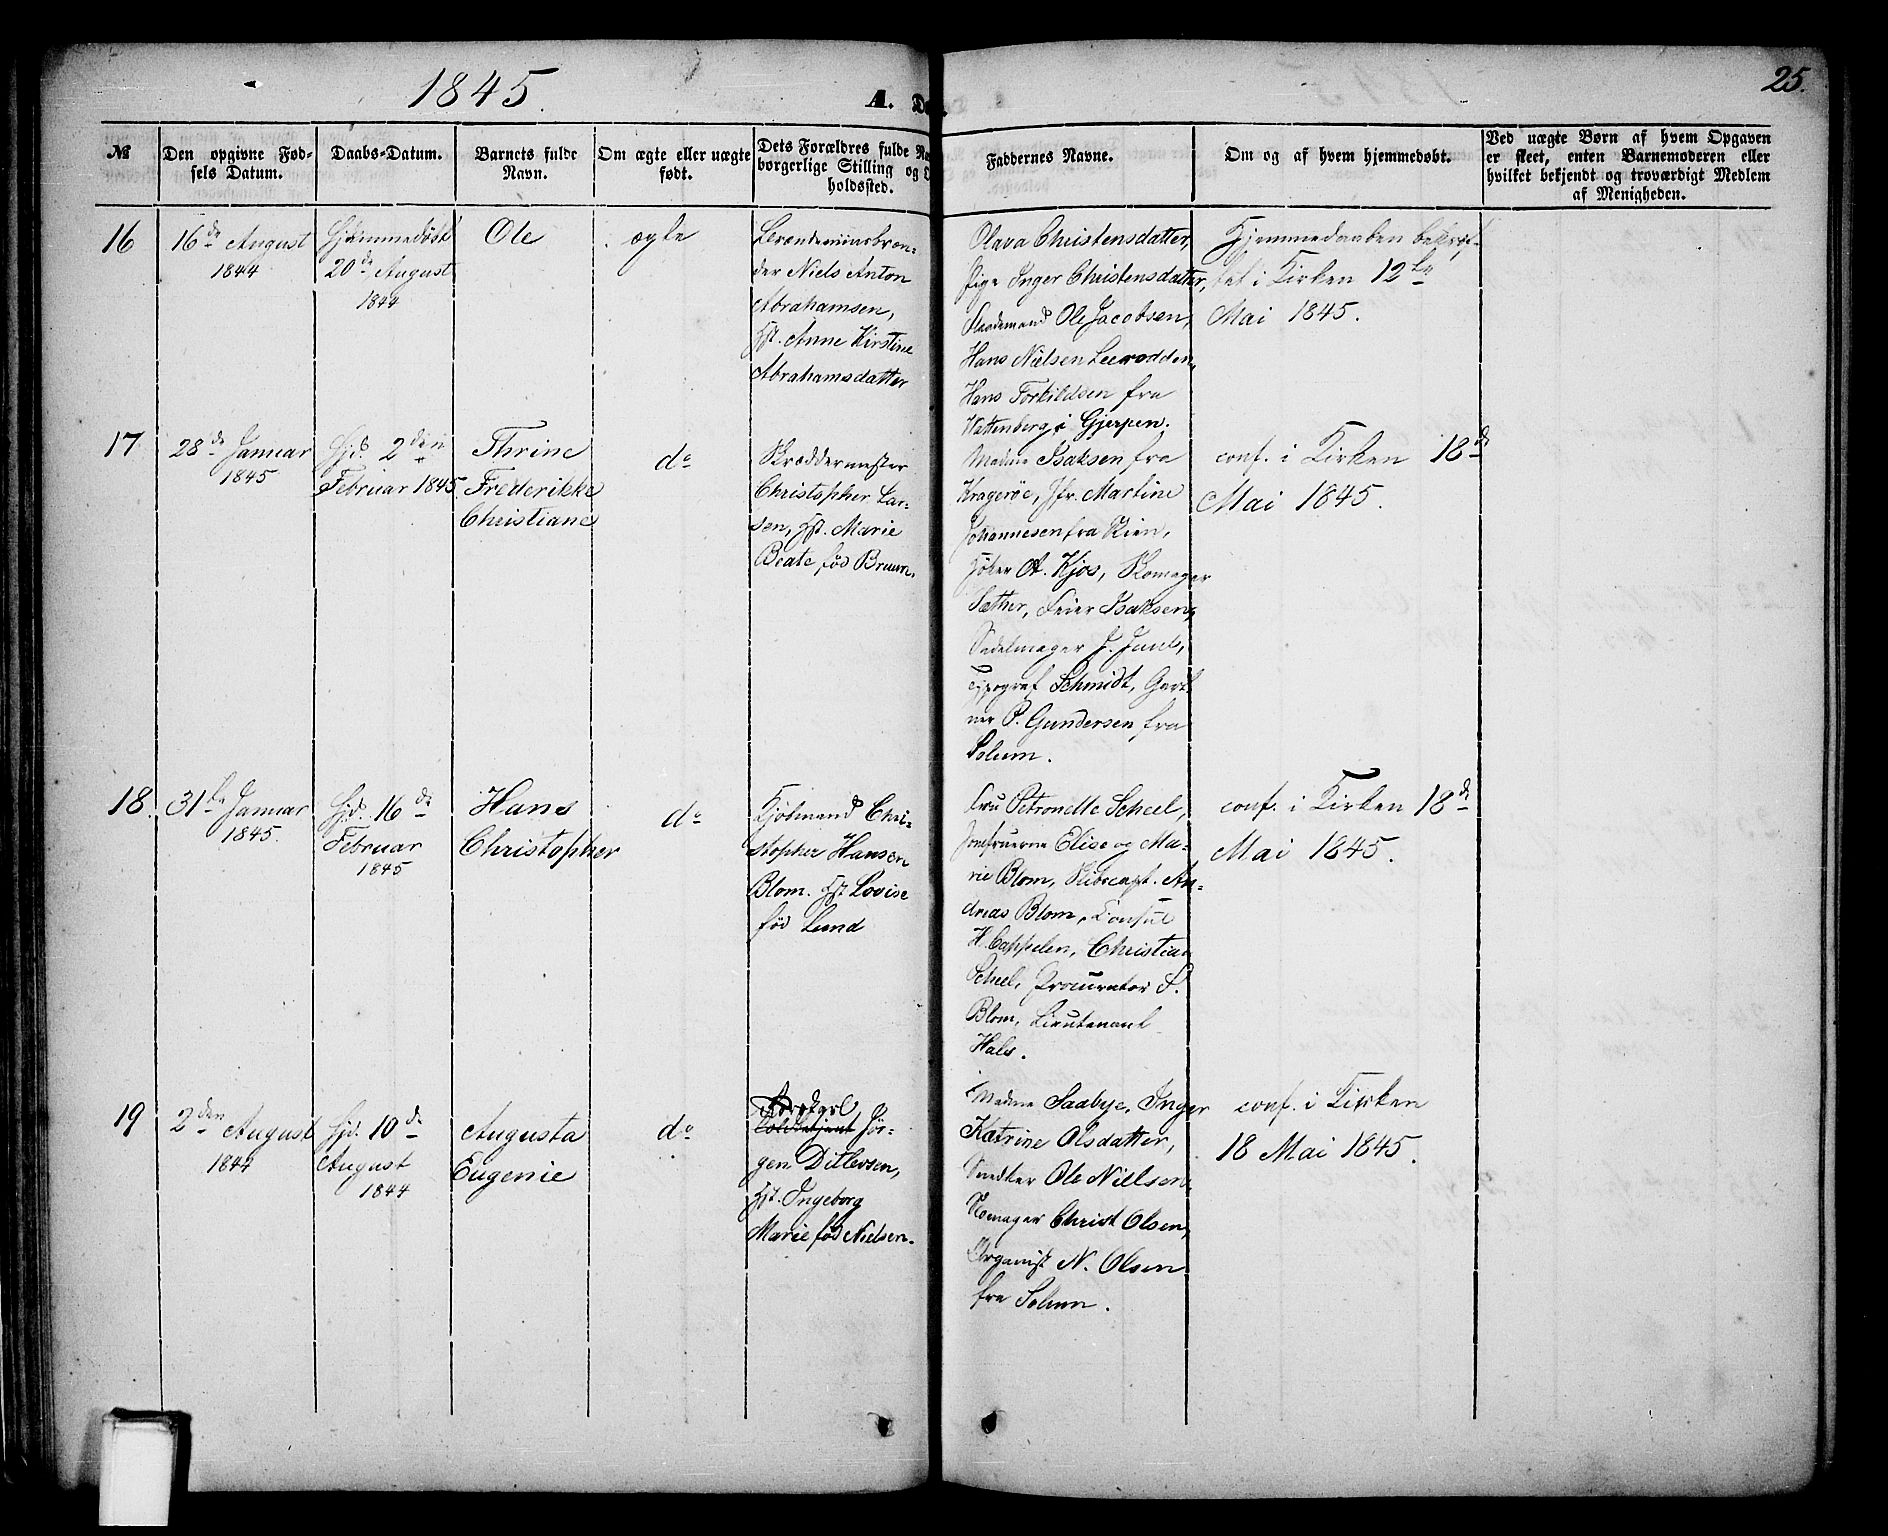 1845.
A. Dø
25.
№
Den opgivne Fød-
sels Datum.
Daabs-Datum.
Barnets fulde
Navn.
Om ægte eller uægte
født.
Dets Forældres fulde Na
borgerlige Stilling og O
holdssted.
Faddernes Navne.
Om og af hvem hjemmedøbt.
Ved uægte Børn af hvem Opgaven
er skeet, enten Barnemoderen eller
hvilket bekjendt og troværdigt Medlem
af Menigheden.
16
16de August
1844
Hjemmedøbt
20de August
1844
Ole
ægte
Brænde-
der Niels Anton
Abrahamsen,
Hst. Anne Kirstine
Abrahamsdatter
Olava Christensdatter,
Pige Inger Christensdatter,
Ole Jacobsen,
Hans Nielsen
Hans Torkildsen fra
i Gjerpen.
Hjemmedaaben bekræf-
tet i Kirken 12te
Mai 1845.
17
28de Januar
1845
Hjd. 2den
Februar 1845
Thrine
Frederikke
Christiane
do
Skræddermester
Christopher Lar-
sen, Hst. Marie
Beate fød Bruun.
Madme Isaksen fra
Kragerøe, Jfr. Martine
Johannesen fra Skien,
A. Kjos, Skomager
Sæther, Feier Isaksen,
Sadelmager J. Juul,
Typograf Schmidt, Gart
ner P. Gundersen fra
Solum.
conf. i Kirken 18de
Mai 1845.
18.
31te Januar
1845.
Hjd. 16de
Februar
1845
Hans
Christopher
do
Kjøbmand Chri-
stopher Hansen
Blom. Hst Lovise
fød Lund
Fru Petronelle Scheel,
Jomfruerne Elise og Ma-
rie Blom, Skibscapt. An-
dreas Blom, Konsul
H. Cappelen, Christian
Scheel, Procurator S.
Blom, Lieutenant
Hals.
conf. i Kirken 18de
Mai 1845.
19
2den August
1844
Hjd. 10de
August
1844
Augusta
Eugenie
do
Jør-
gen Ditlevsen,
Hst. Ingeborg
Marie fød Nielsen.
Madme Saabye, Inger
Katrine Olsdatter,
Snedker Ole Nillsen
Skomager Christ Olsen,
Organist N. Olsen
fra Solum.
conf. i Kirken
18 Mai 1845.